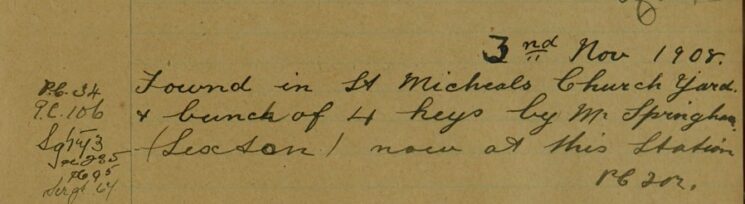 3nd Nov 1908.
P.C. 34
Found in St Micheals Church Yard.
P.C. 106
& bunch of 4 keys by Mr Springham
Sgt 3
(Sexton) now at this Station
PC 202.
Sergt 64